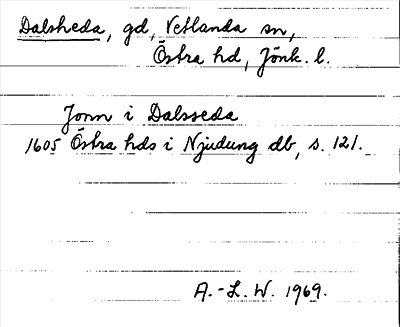 Dalsheda, gd, Vetlanda sn,
Östra hd, Jönk. l.
Jonn i Dalsseda
1605 Östra hds i Njudung db, s. 121.
A.-L. W. 1969.